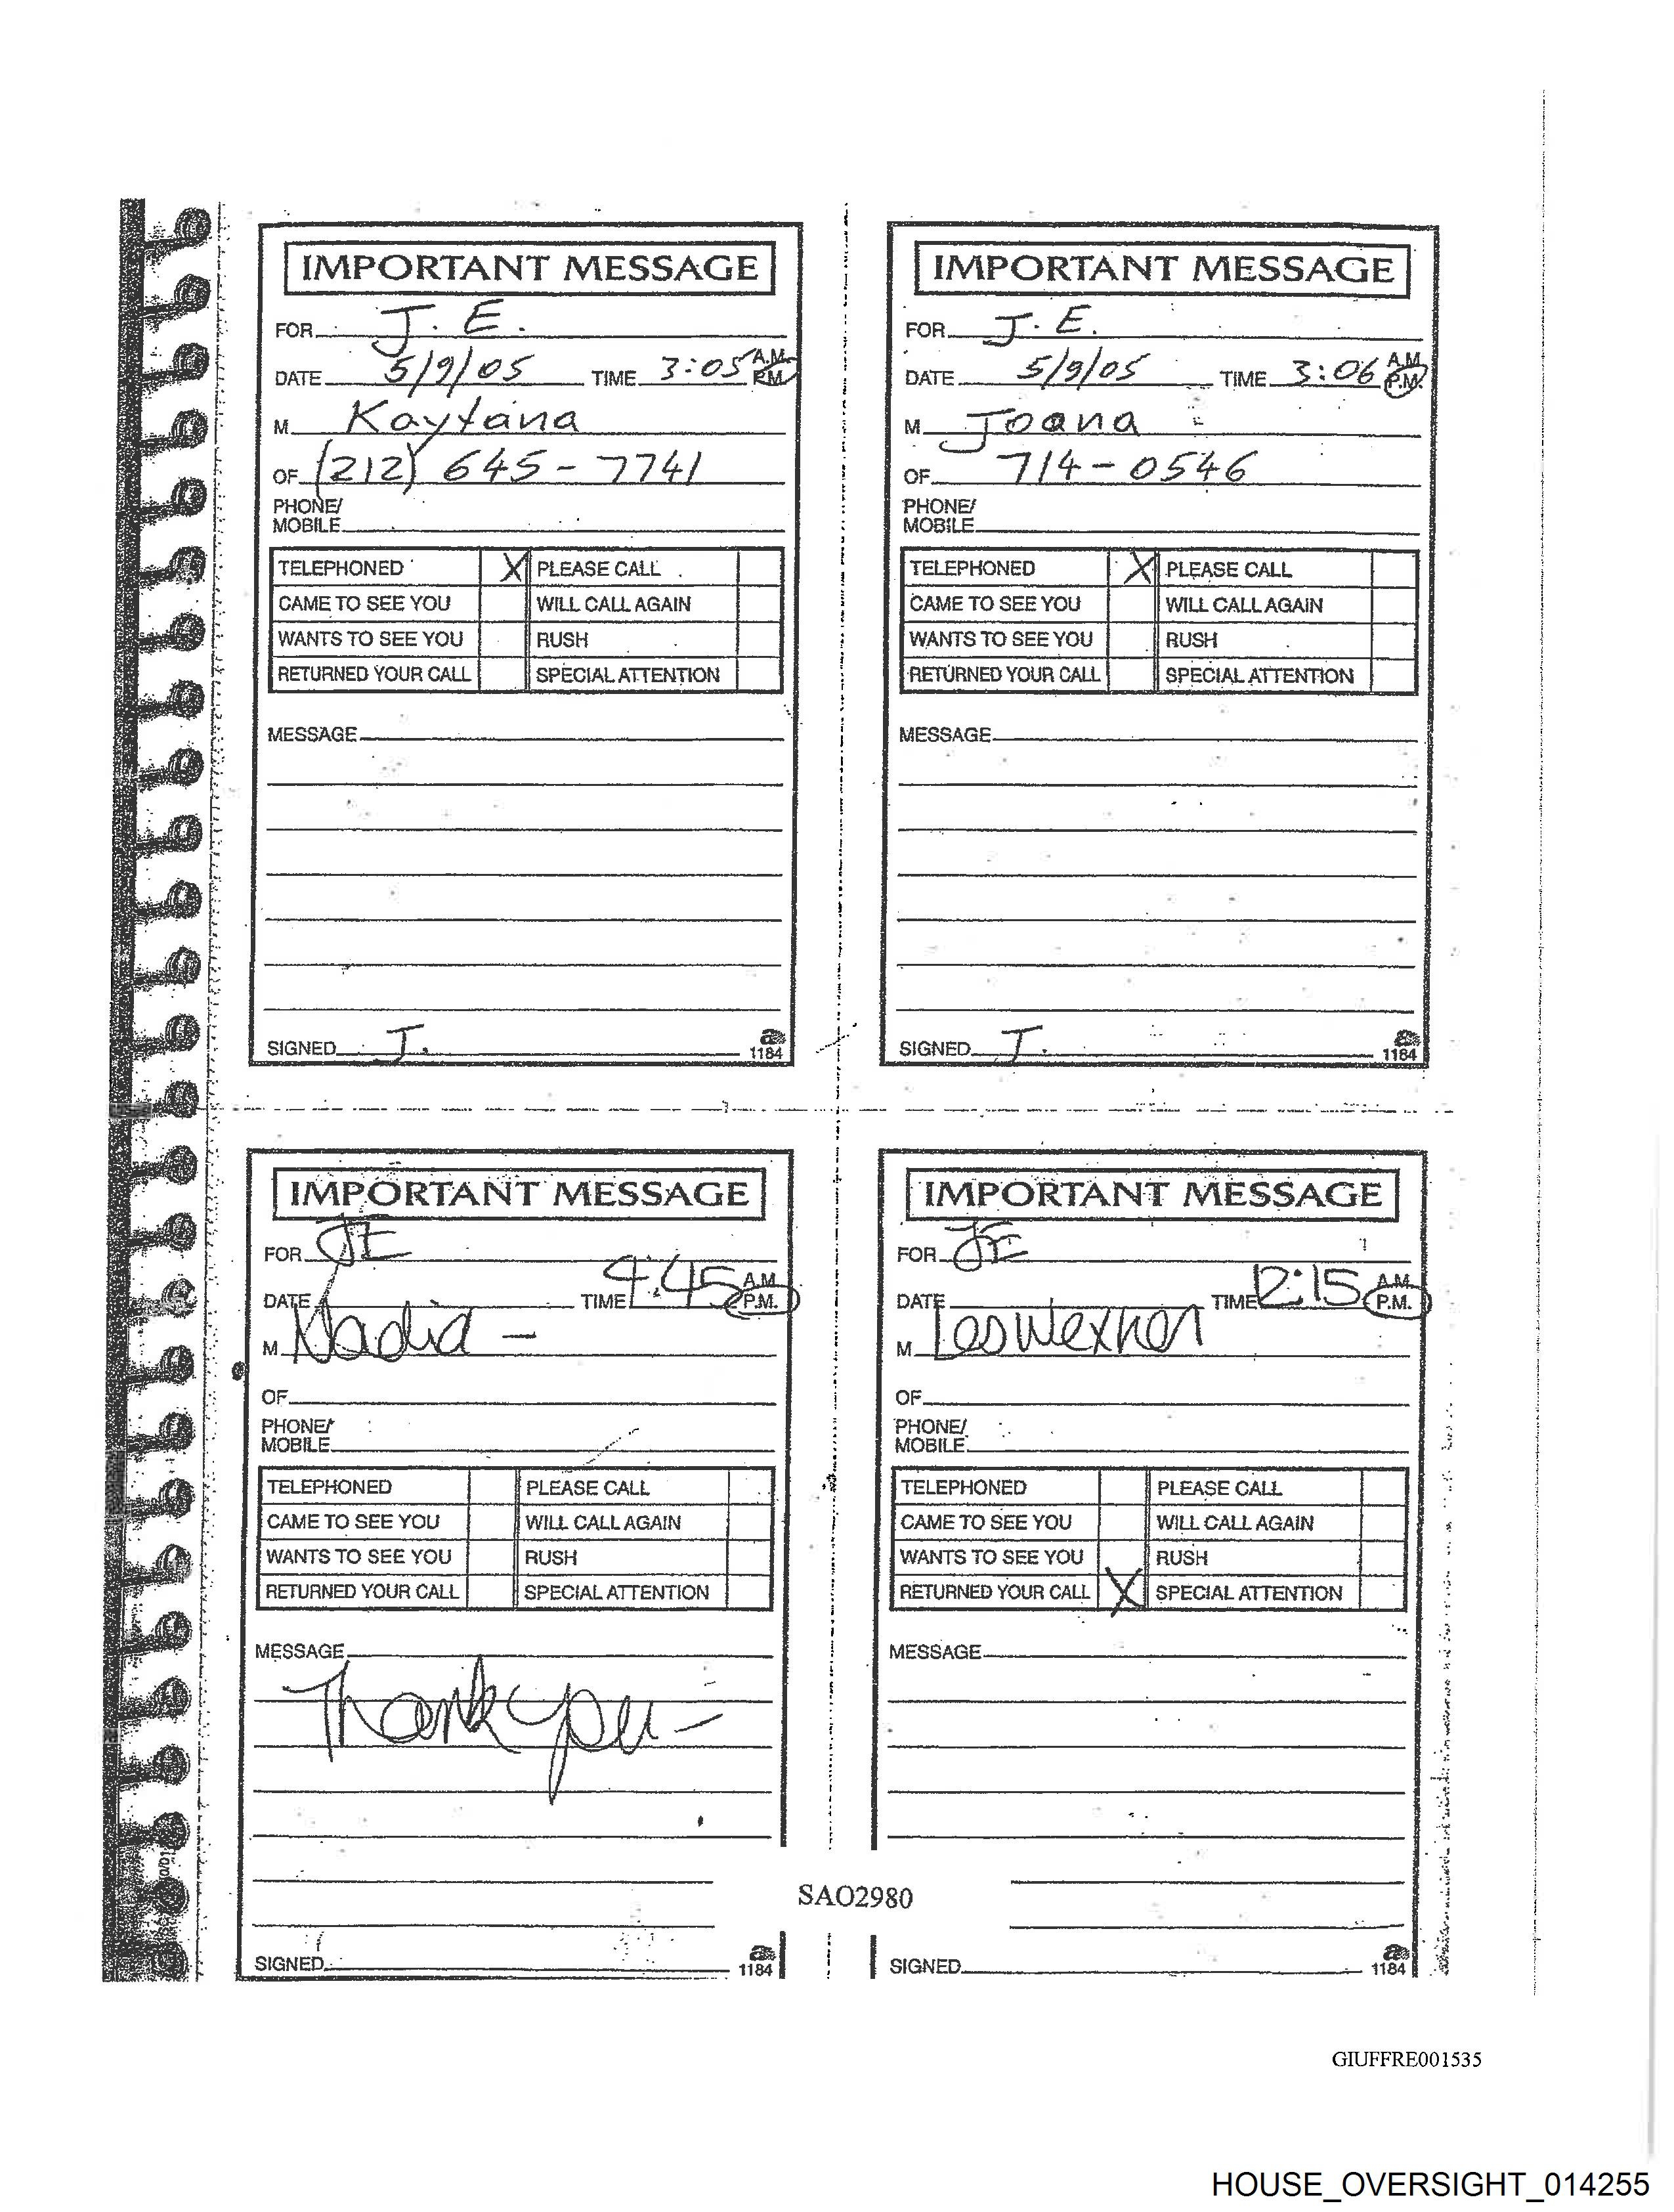 IMPORTANT MESSAGE
FOR J. E.
DATE 5/9/05 TIME 3:05 A.M. P.M.
M Kaytana
OF (212) 645-7741
PHONE/
MOBILE
TELEPHONED X PLEASE CALL
CAME TO SEE YOU WILL CALL AGAIN
WANTS TO SEE YOU RUSH
RETURNED YOUR CALL SPECIAL ATTENTION
MESSAGE
SIGNED J.
1184
IMPORTANT MESSAGE
FOR J. E.
DATE 5/9/05 TIME 3:06 A.M. P.M.
M Joana
OF 714-0546
PHONE/
MOBILE
TELEPHONED X PLEASE CALL
CAME TO SEE YOU WILL CALL AGAIN
WANTS TO SEE YOU RUSH
RETURNED YOUR CALL SPECIAL ATTENTION
MESSAGE
SIGNED J.
1184
IMPORTANT MESSAGE
FOR JE
DATE TIME 4:45 A.M. P.M.
M Nadia -
OF
PHONE/
MOBILE
TELEPHONED PLEASE CALL
CAME TO SEE YOU WILL CALL AGAIN
WANTS TO SEE YOU RUSH
RETURNED YOUR CALL SPECIAL ATTENTION
MESSAGE
Thank you -
SIGNED
1184
IMPORTANT MESSAGE
FOR JE
DATE TIME 12:15 A.M. P.M.
M Les Wexner
OF
PHONE/
MOBILE
TELEPHONED PLEASE CALL
CAME TO SEE YOU WILL CALL AGAIN
WANTS TO SEE YOU RUSH
RETURNED YOUR CALL X SPECIAL ATTENTION
MESSAGE
SIGNED
1184
SAO2980
GIUFFRE001535
HOUSE_OVERSIGHT_014255